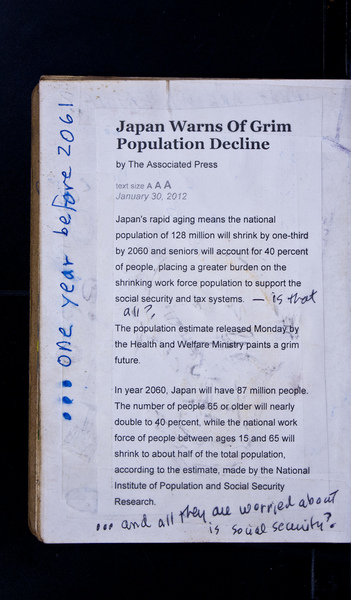 Japan Warns Of Grim
Population Decline
by The Associated Press
text size A A A
January 30, 2012
Japan's rapid aging means the national
population of 128 million will shrink by one-third
by 2060 and seniors will account for 40 percent
of people, placing a greater burden on the
shrinking work force population to support the
social security and tax systems. — is that
all?,
The population estimate released Monday by
the Health and Welfare Ministry paints a grim
future.
In year 2060, Japan will have 87 million people.
The number of people 65 or older will nearly
double to 40 percent, while the national work
force of people between ages 15 and 65 will
shrink to about half of the total population,
according to the estimate, made by the National
Institute of Population and Social Security
Research.
... and all they are worried about
is social security?.
... one year before 2061